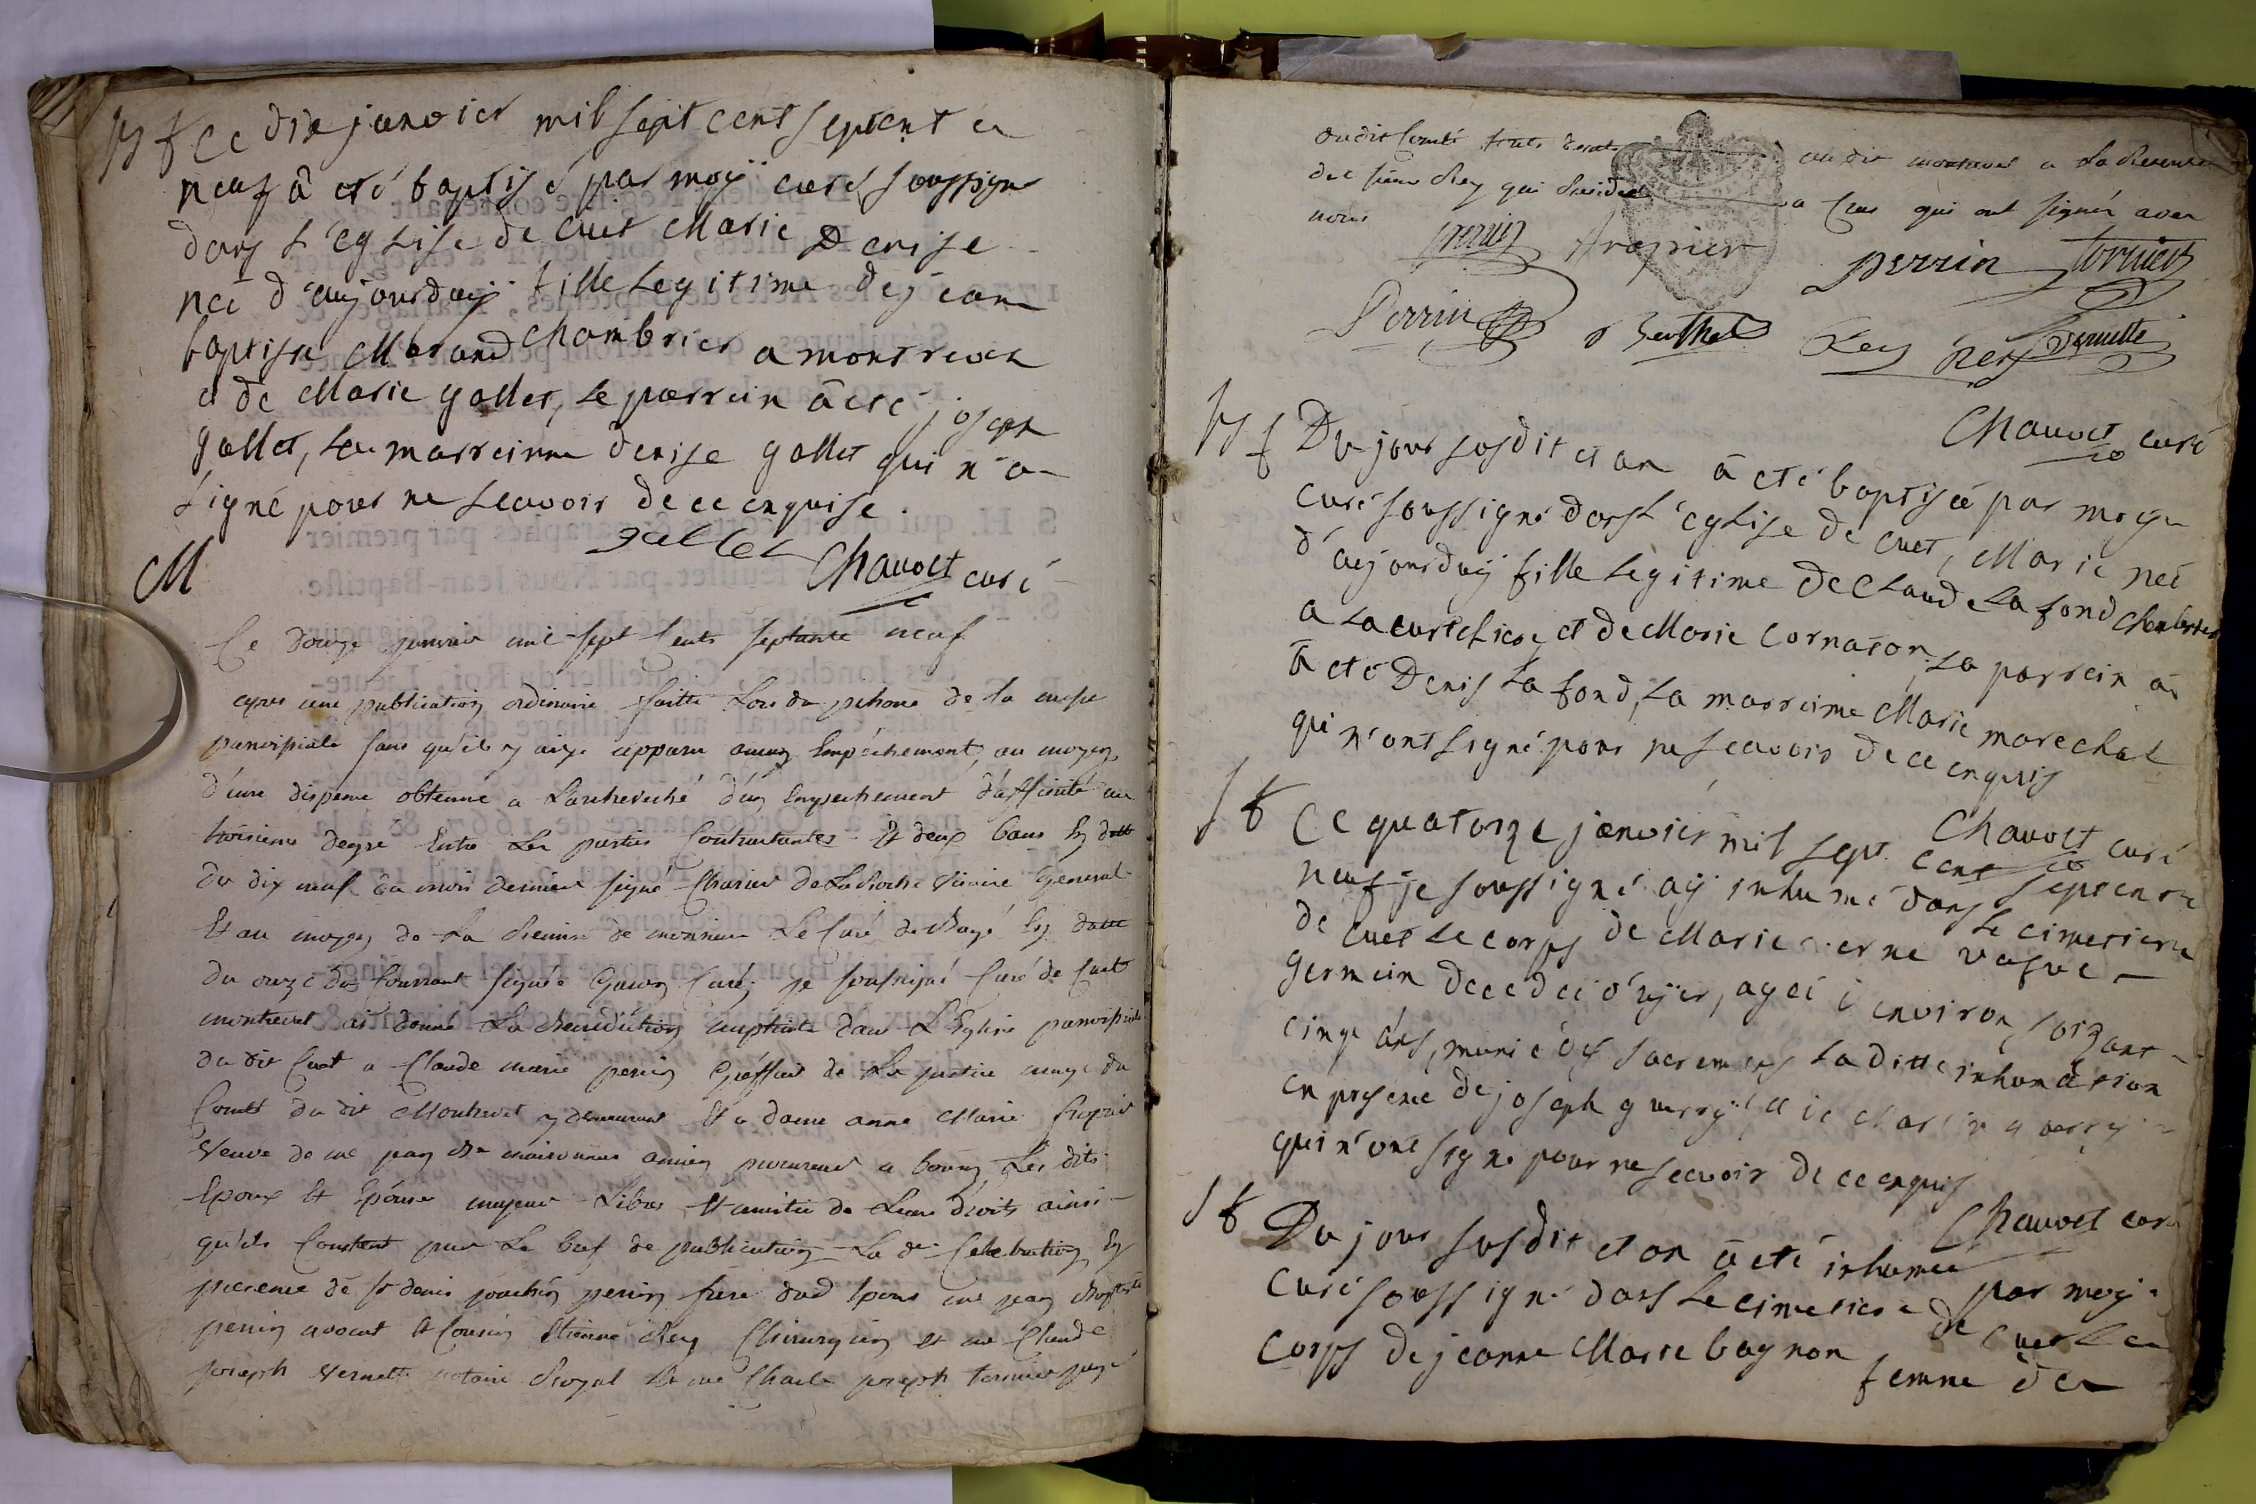 Ce dix janvier mil sept cent septente
neuf â eté baptisé par moÿ curé soussigne
dans L'eglise de cuet Marie Denise
neé d'aujourduÿ fille Legitime de jean
baptiste Morand chambrier a montrevel
et de Marie gollet, Le parrein â eté joseph
gollet, La marreinne denise gollet qui n'a
signé pour ne scavoir de ce enquise.
gollet Chavoet curé
M
Ce douze janvier mil sept Cents septante neuf
apres une publication ordinaire faitte Lors du prhone de la messe
paroissiale sans qu'il y aitye apparu aucun Empêchement, au moyen
d'une dispense obtenue a L'archeveché d'un Empechement d'affinité au
troisieme degré Entre Les parties Contractantes Et deux bans En datte
du dix neuf du mois dernier signé Charier de La Roche Vicaire General
Et au moyen de La Remise de monsieur Le Curé de Bagé En datte
du onze du Courant signée Curé, je soussigné Curé de Cuet
montrevel ai donné La Benediction nuptiale dans L'Eglise paroissiale
du dit Cuet a Claude marie perrin Greffier de La justice mage du
Comté du dit Montrevel y demeurant Et a dame anne Marie
Veuve de me jean ancien procureur a bourg Les dits
Epoux Et Epouse majeurs Libres Et maitre de Leurs droits ainsi
qu'ils Constent par Le bref de publication La de Celebration En
presence de sr denis joachin perrin frere dud Epoux me jean Baptiste
perrin avocat Et Cousin Etienne Rey Chirurgien et me Claude
joseph Vernette notaire Royal Et me Charle joseph Tornier juge
dudit Comté
du sieur Rey qui Reside
nous
audit montrevel a La Reserve
a Ceux qui ont signés avec
perrin
perrin Tornier
Perrin Berthet Rey Vernette
Chavoet curé
Du jour susdit et an â eté baptiseé par moy
curé soussigné dans L'eglise de cuet, Marie neé
d'aujourduÿ fille Legitime de Claude La fond
a et de Marie Cornaton, Le parrein â
â eté Denis La fond, La marreinne Marie marechal
qui n'ont signé pour ne scavoir de ce enquis
Chavoet curé
Ce quatorze janvier mil sept cent septente
neuf je soussigné aÿ inhumé dans Le cimetiere
de cuet Le corps de Marie vefve
germain decedeé d'hÿer, ageé d'environ soizant
cinq ans, munie des sacremens La ditte inhumation
en presence de joseph
qui n'ont signé pour ne scavoir de ce enquis
Chavoet curé
Du jour susdit et an â eté inhumee par moy
curé soussigné dans Le cimetiere de cuet Le
corps de jeanne Marie bagnon femme de